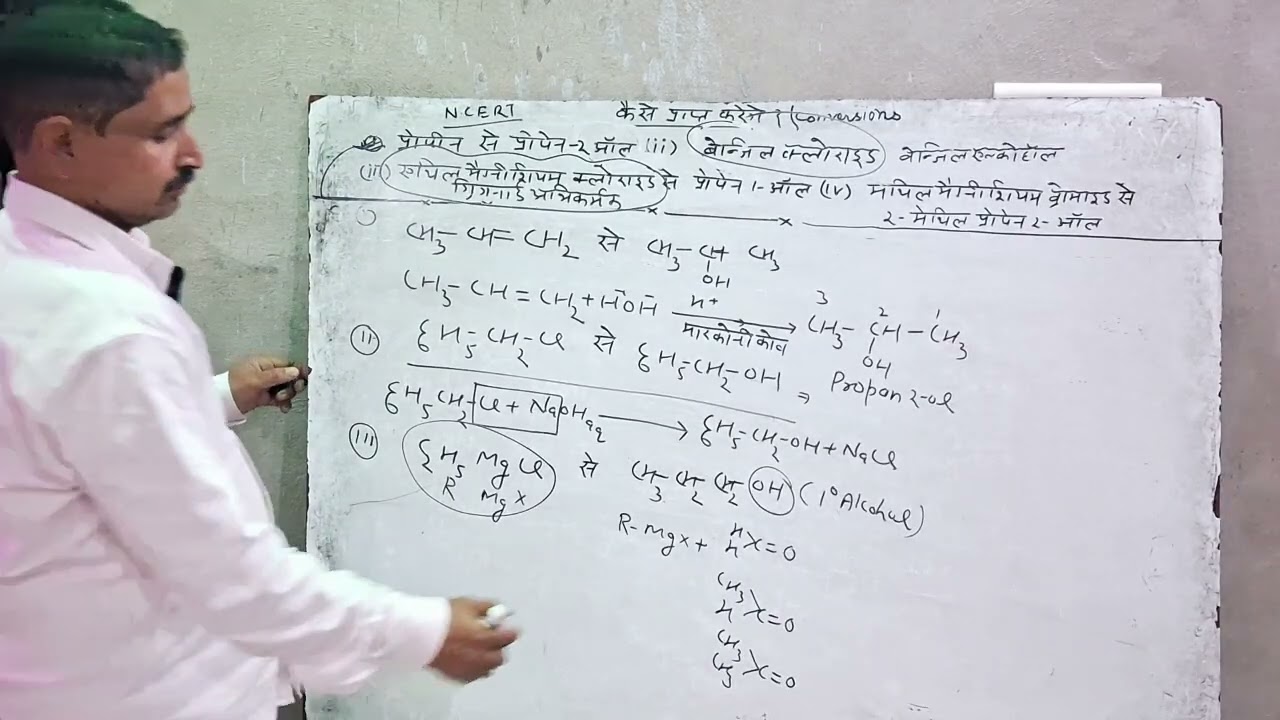 NCERT कैसे प्राप्त करेंगे ? (Conversions
प्रोपीन से प्रोपेन-2 ऑल (ii) बेन्जिल क्लोराइड बेन्जिल एल्कोहॉल
(iii) एथिल मैग्नीशियम क्लोराइड से प्रोपेन 1-ऑल (iv) मेथिल मैग्नीशियम ब्रोमाइड से
ग्रिगनार्ड अभिकर्मक 2-मेथिल प्रोपेन 2-ऑल
i) CH3-CH=CH2 से CH3-CH CH3
OH
CH3-CH=CH2+H+OH- H+ 3 CH3-2 CH-1 CH3
मारकोनीकोव
OH
(ii) C6H5-CH2-Cl से C6H5-CH2-OH → Propan 2-ol
C6H5CH2-Cl+NaOHaq → C6H5-CH2-OH+NaCl
(iii) C2H5 MgCl से CH3-CH2-CH2-OH (1° Alcohol)
R MgX
R-MgX+ H H C=O
CH3 H C=O
CH3 CH3 C=O